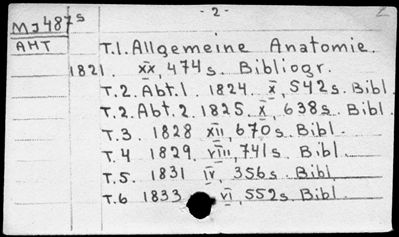 - 2 -
2
MJ487s
AHT
T.1. Allgemeine Anatomie.
1821. xx, 474 s. Bibliogr.
T.2. Abt.1 1824. x, 542 s. Bibl.
T.2. Abt.2. 1825. x, 638 s. Bibl.
T.3 1828 xii, 670 s. Bibl.
T.4 1829. viii, 741 s. Bibl.
T.5. 1831 iv, 356 s. Bibl.
T.6 1833 vi, 552 s. Bibl.